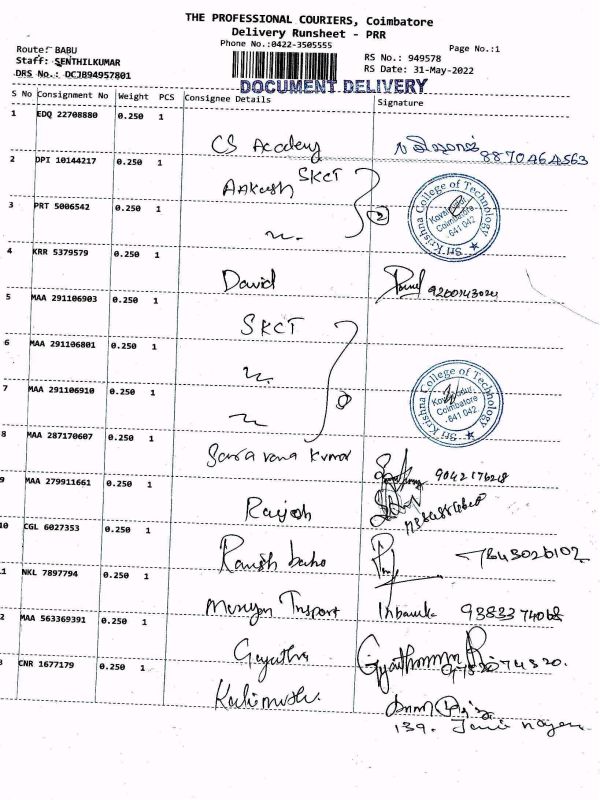 THE PROFESSIONAL COURIERS, Coimbatore
Delivery Runsheet - PRR
Phone No.:0422-3505555
Page No.:1
Route: BABU
Staff: SENTHILKUMAR
DRS No.: DCJB94957801
RS No.: 949578
RS Date: 31-May-2022
DOCUMENT DELIVERY
S No Consignment No Weight PCS Consignee Details Signature
1 EDQ 22708880 0.250 1
CS Academy 8870464563
2 DPI 10144217 0.250 1
Aakash SKCT
Sri Krishna College of Technology
Kovaipudur
Coimbatore
641 042
3 PRT 5006542 0.250 1
2
4 KRR 5379579 0.250 1
David
5 MAA 291106903 0.250 1
SKCT
6 MAA 291106801 0.250 1
Sri Krishna College of Technology
Kovaipudur
Coimbatore
641 042
7 MAA 291106910 0.250 1
8 MAA 287170607 0.250 1
Saravana Kumar
9 MAA 279911661 0.250 1
Rajesh
10 CGL 6027353 0.250 1
Ramesh babu
1 NKL 7897794 0.250 1
Murugan Trnsport 9383374068
2 MAA 563369391 0.250 1
Gayathri
3 CNR 1677179 0.250 1
139.